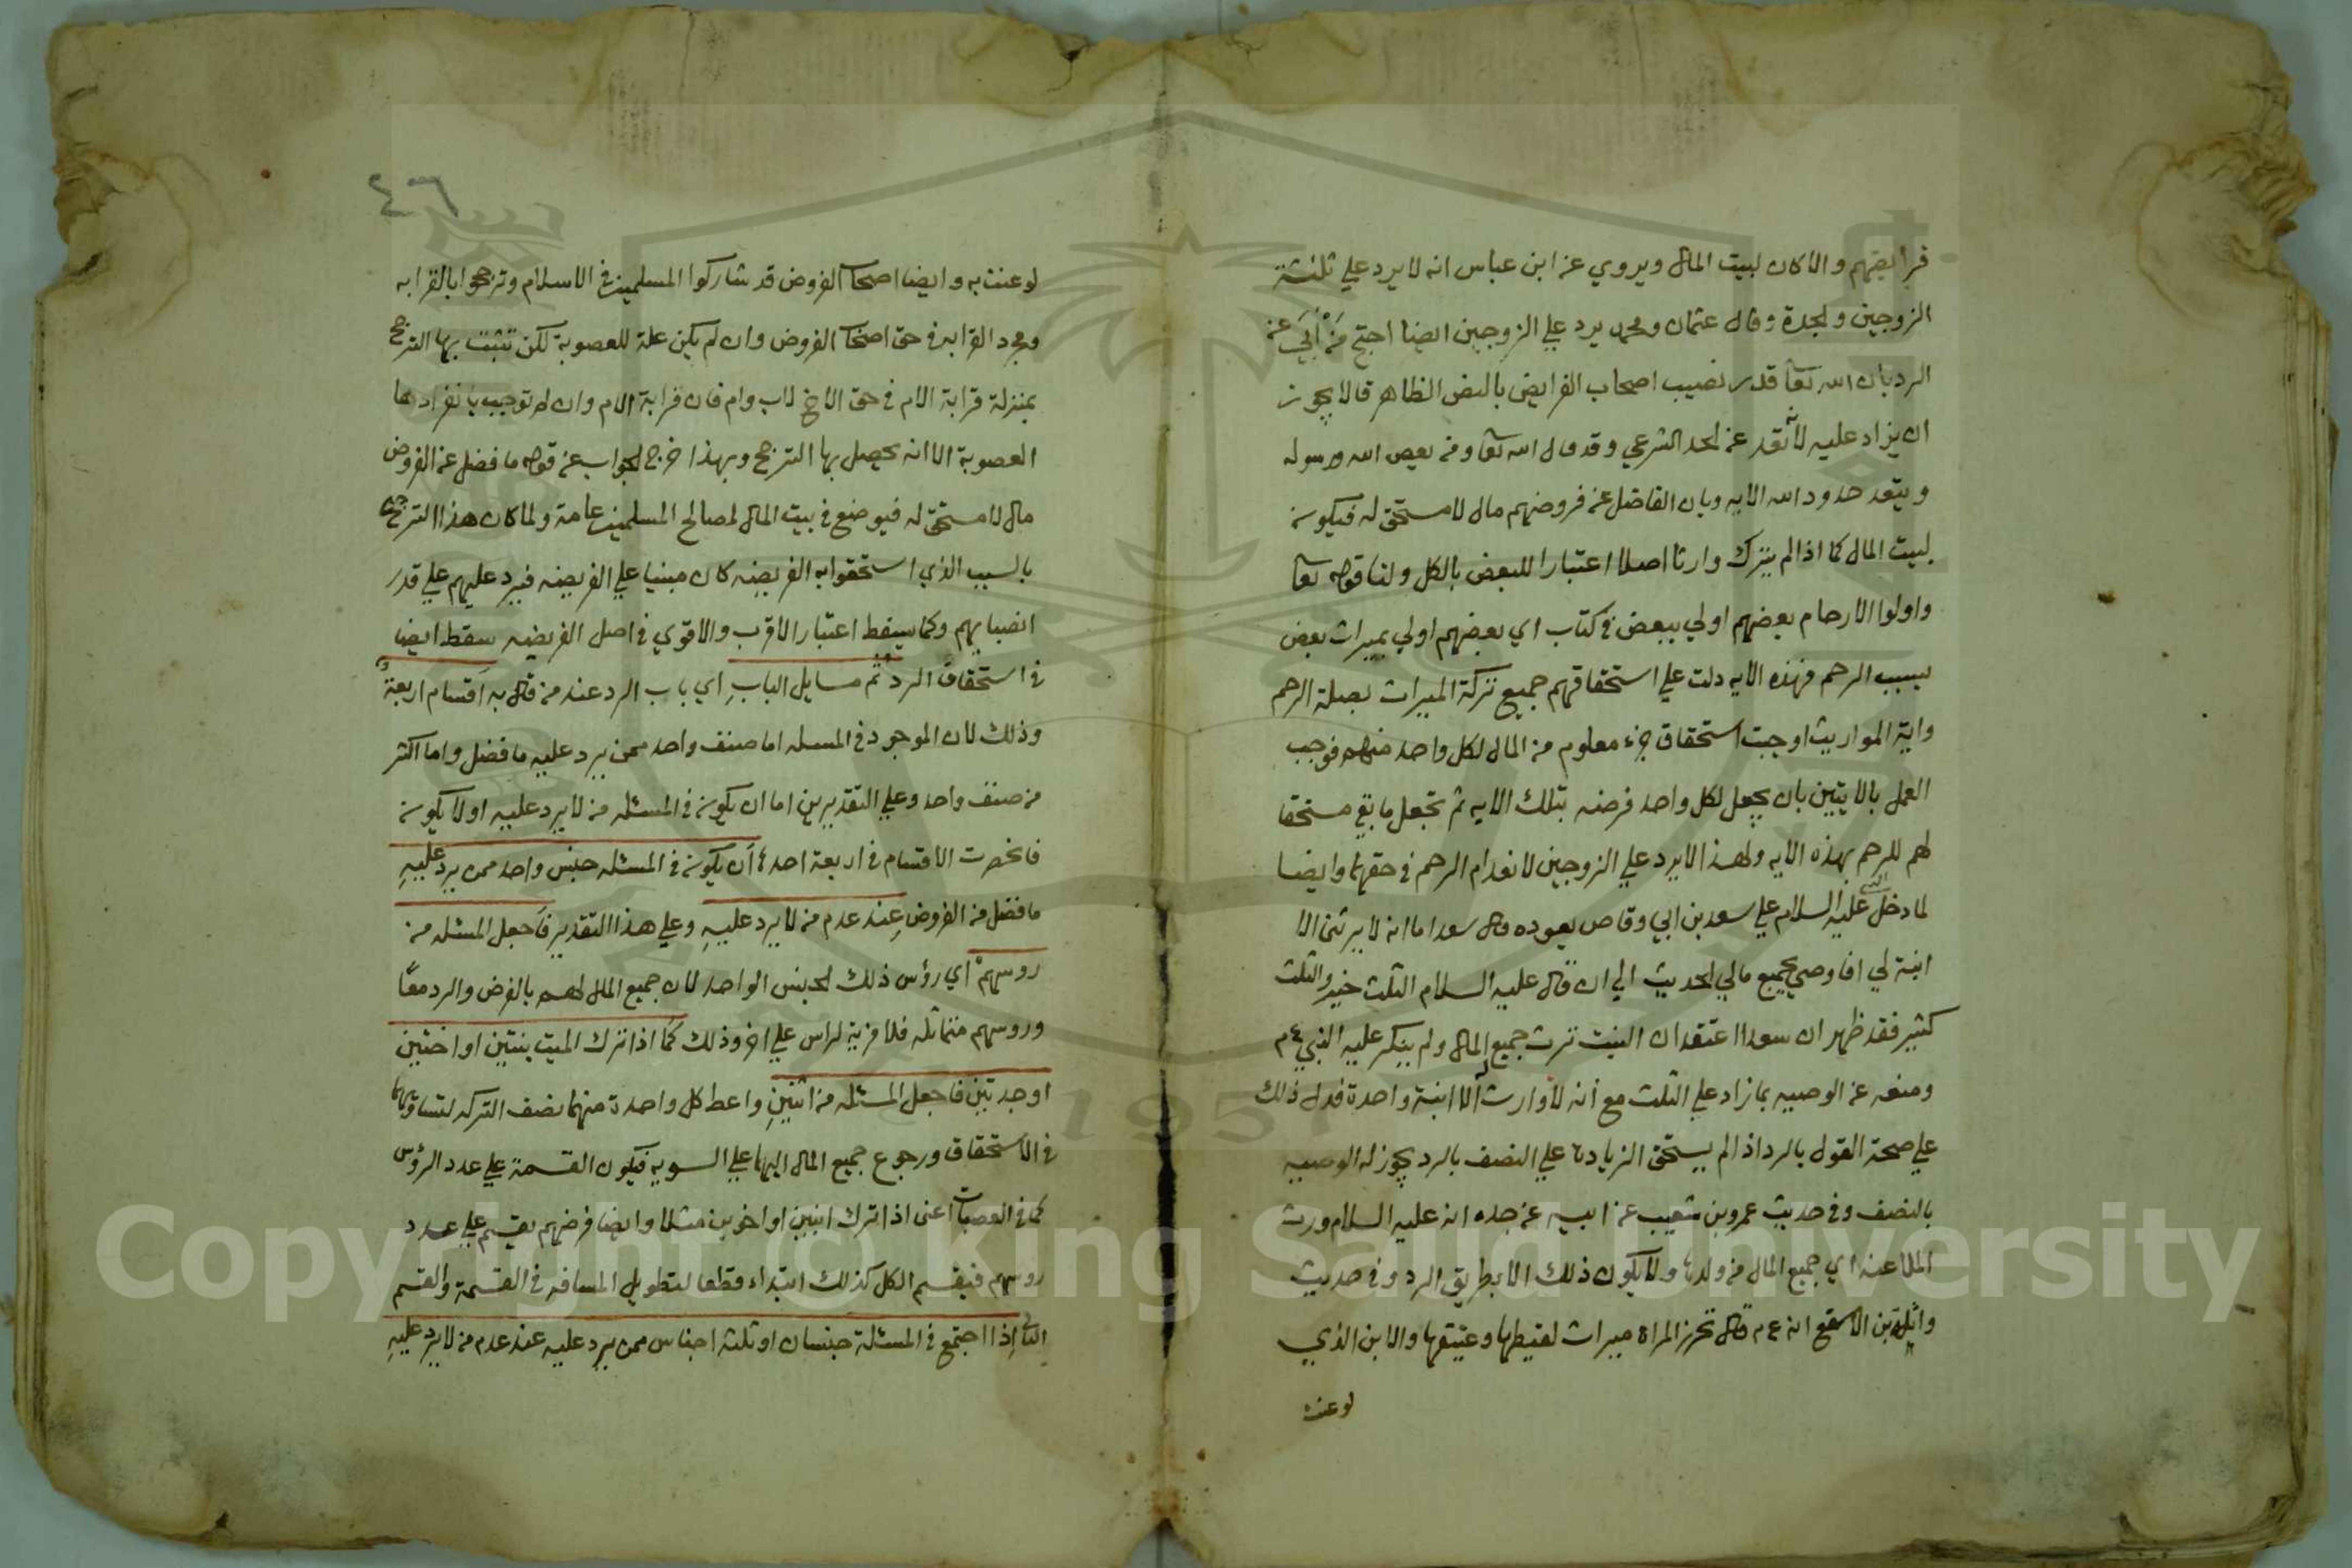 فرايضهم والا كان لبيت المال ويروي عن ابن عباس انه لا يرد علي ثلثة
الزوجين والجدة وقال عثمان ومحمد يرد علي الزوجين ايضا احتج مَنْ أَبَي عن
الرد بان الله تعا قدر نصيب اصحاب الفرايض بالنص الظاهر فلا يجوز
ان يزاد عليه لأنه تعد عن الحد الشرعي وقد قال الله تعا ومن يعص الله ورسوله
ويتعد حدود الله الايه وبان الفاضل عن فروضهم مال لا مستحق له فيكون
لبيت المال كما اذا لم يترك وارثا اصلا اعتبارا للبعض بالكل ولنا قوله تعا
واولوا الارحام بعضهم اولي ببعض في كتاب اي بعضهم اولي بميراث بعض
بسبب الرحم فهذه الايه دلت علي استحقاقهم جميع تركة الميراث بصلة الرحم
واية المواريث اوجبت استحقاق جزء معلوم من المال لكل واحد منهم فوجب
العمل بالايتين بان يجعل لكل واحد فرضه بتلك الايه ثم تجعل ما بقي مستحقا
لهم للرحم بهذه الايه ولهذا لا يرد علي الزوجين لانعدام الرحم في حقهما وايضا
لما دخل النبي عليه السلام علي سعد بن ابي وقاص يعوده قال سعد اما انه لا يرثني الا
ابنة لي افاوصي بجميع مالي الحديث الي ان قال عليه السلام الثلث خير والثلث
كثير فقد ظهر ان سعدا اعتقد ان البنت ترث جميع المال ولم ينكر عليه النبي ع م
ومنعه عن الوصيه بما زاد علي الثلث مع أنه لا وارث له الا ابنة واحدة فدل ذلك
علي صحة القول بالرد اذ لم يستحق الزيادة علي النصف بالرد يجوز له الوصيه
بالنصف وفي حديث عمرو بن شعيب عن ابيه عن جده انه عليه السلام ورث
الملاعنه اي جميع المال من ولدها ولا يكون ذلك الا بطريق الرد وفي حديث
واثلة بن الاسقع انه ع م قال تحرز المراة ميراث لقيطها وعتيقها والابن الذي
لوعنت
٤٦
لوعنت به وايضا اصحاب الفروض قد شاركوا المسلمين في الاسلام وترجحوا بالقرابه
ومجرد القرابه في حق اصحاب الفروض وان لم يكن علة للعصوبة لكن تثبت بها الترجح
بمنزلة قرابة الام في حق الاخ لاب وام فان قرابة الام وان لم توجب بانفرادها
العصوبة الا انه يحصل بها الترجح وبهذا خرج الجواب عن قوله ما فضل عن الفروض
مال لا مستحق له فيوضع في بيت المال لمصالح المسلمين عامة ولما كان هذا الترجح
بالسبب الذي استحقوا به الفريضه كان مبنيا علي الفريضه فيرد عليهم علي قدر
انصبايهم وكما سيقط اعتبار الاقرب والاقوي في اصل الفريضه سقط ايضا
في استحقاق الرد ثم مسايل البابِ اي باب الرد عند من قال به أقسام اربعةٌ
وذلك لان الموجود في المسله اما صنف واحد ممن يرد عليه ما فضل واما اكثر
من صنف واحد وعلي التقديرين اما ان يكون في المسئله من لا يرد عليه او لا يكون
فانحصرت الاقسام في اربعة احدها أن يكون في المسئله جنس واحد ممن يرد عليهِ
ما فضل من الفروضِ عِند عدم من لا يرد عليهِ وعلي هذا التقدير فاَجعل المسئله من
روسهمْ اي رؤس ذلك الجنس الواحد لان جميع المال لهم بالفرض والرد معًا
وروسهم متماثله فلا مزية لراس علي اخر وذلك كَما اذا ترك الميت بنتين او اختين
او جدتين فاجعل المسئله من اثنينِ واعط كل واحدة منهما نصف التركه لتساويهما
في الاستحقاق ورجوع جميع المال اليهما علي السويه فيكون القسمة علي عدد الرؤس
كما في العصبات اعني اذا ترك ابنين او اخوين مثلا وايضا فرضهم يقسم علي عدد
روسهم فيقسم الكل كذلك ابتداء قطعا لتطويل المسافه في القسمة والقسم
الثاني إذا اجتمع في المسئلة جنسان او ثلثة اجناس ممن يرد عليه عند عدم من لا يرد عليهِ
Copyright © King Saud University
1957